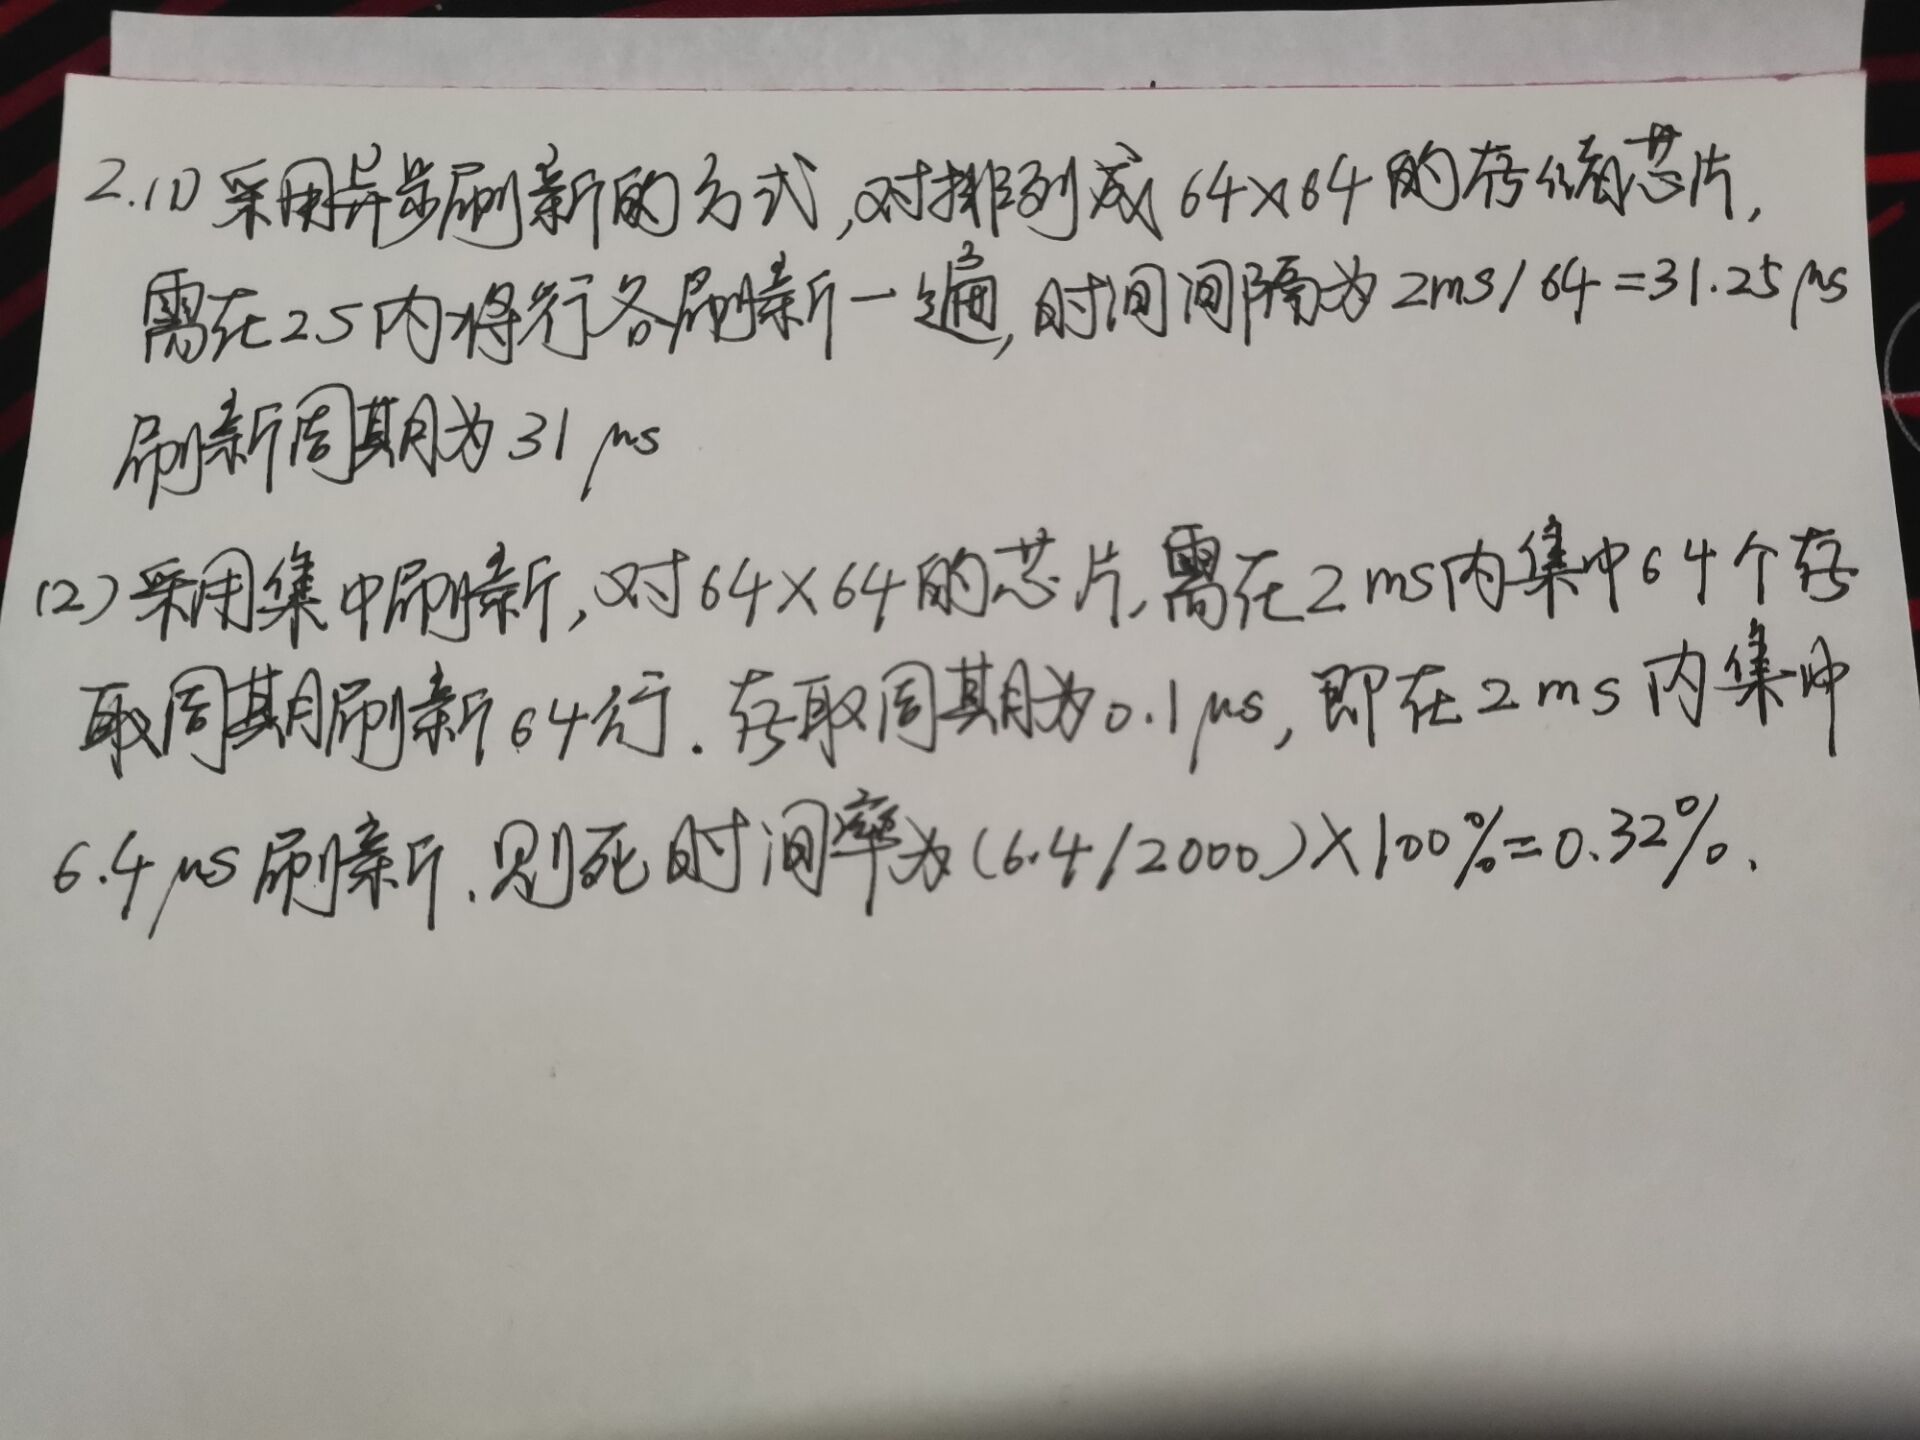 2.(1)采用异步刷新的方式,对排列成64×64的存储芯片,
需在2s内将行各刷新一遍,时间间隔为2ms/64=31.25μs
刷新周期为31μs
(2)采用集中刷新,对64×64的芯片,需在2ms内集中64个存
取周期刷新64行.存取周期为0.1μs,即在2ms内集中
6.4μs刷新.则死时间率为(6.4/2000)×100%=0.32%.